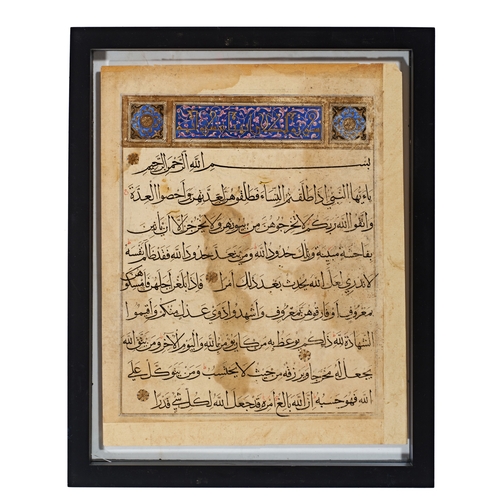 بسم الله الرحمن الرحيم
ياءيها النبي اذا طلقتم النساء فطلقوهن لعدتهن واحصوا العدة
واتقوا الله ربكم لا تخرجوهن من بيوتهن ولا يخرجن الا ان ياتين
بفاحشة مبينة وتلك حدود الله ومن يتعد حدود الله فقد ظلم نفسه
لا تدري لعل الله يحدث بعد ذلك امرا فاذا بلغن اجلهن فامسكوهن
بمعروف او فارقوهن بمعروف واشهدوا ذوي عدل منكم واقيموا
الشهادة لله ذلكم يوعظ به من كان يؤمن بالله واليوم الاخر ومن يتق الله
يجعل له مخرجا ويرزقه من حيث لا يحتسب ومن يتوكل على
الله فهو حسبه ان الله بالغ امره قد جعل الله لكل شي قدرا